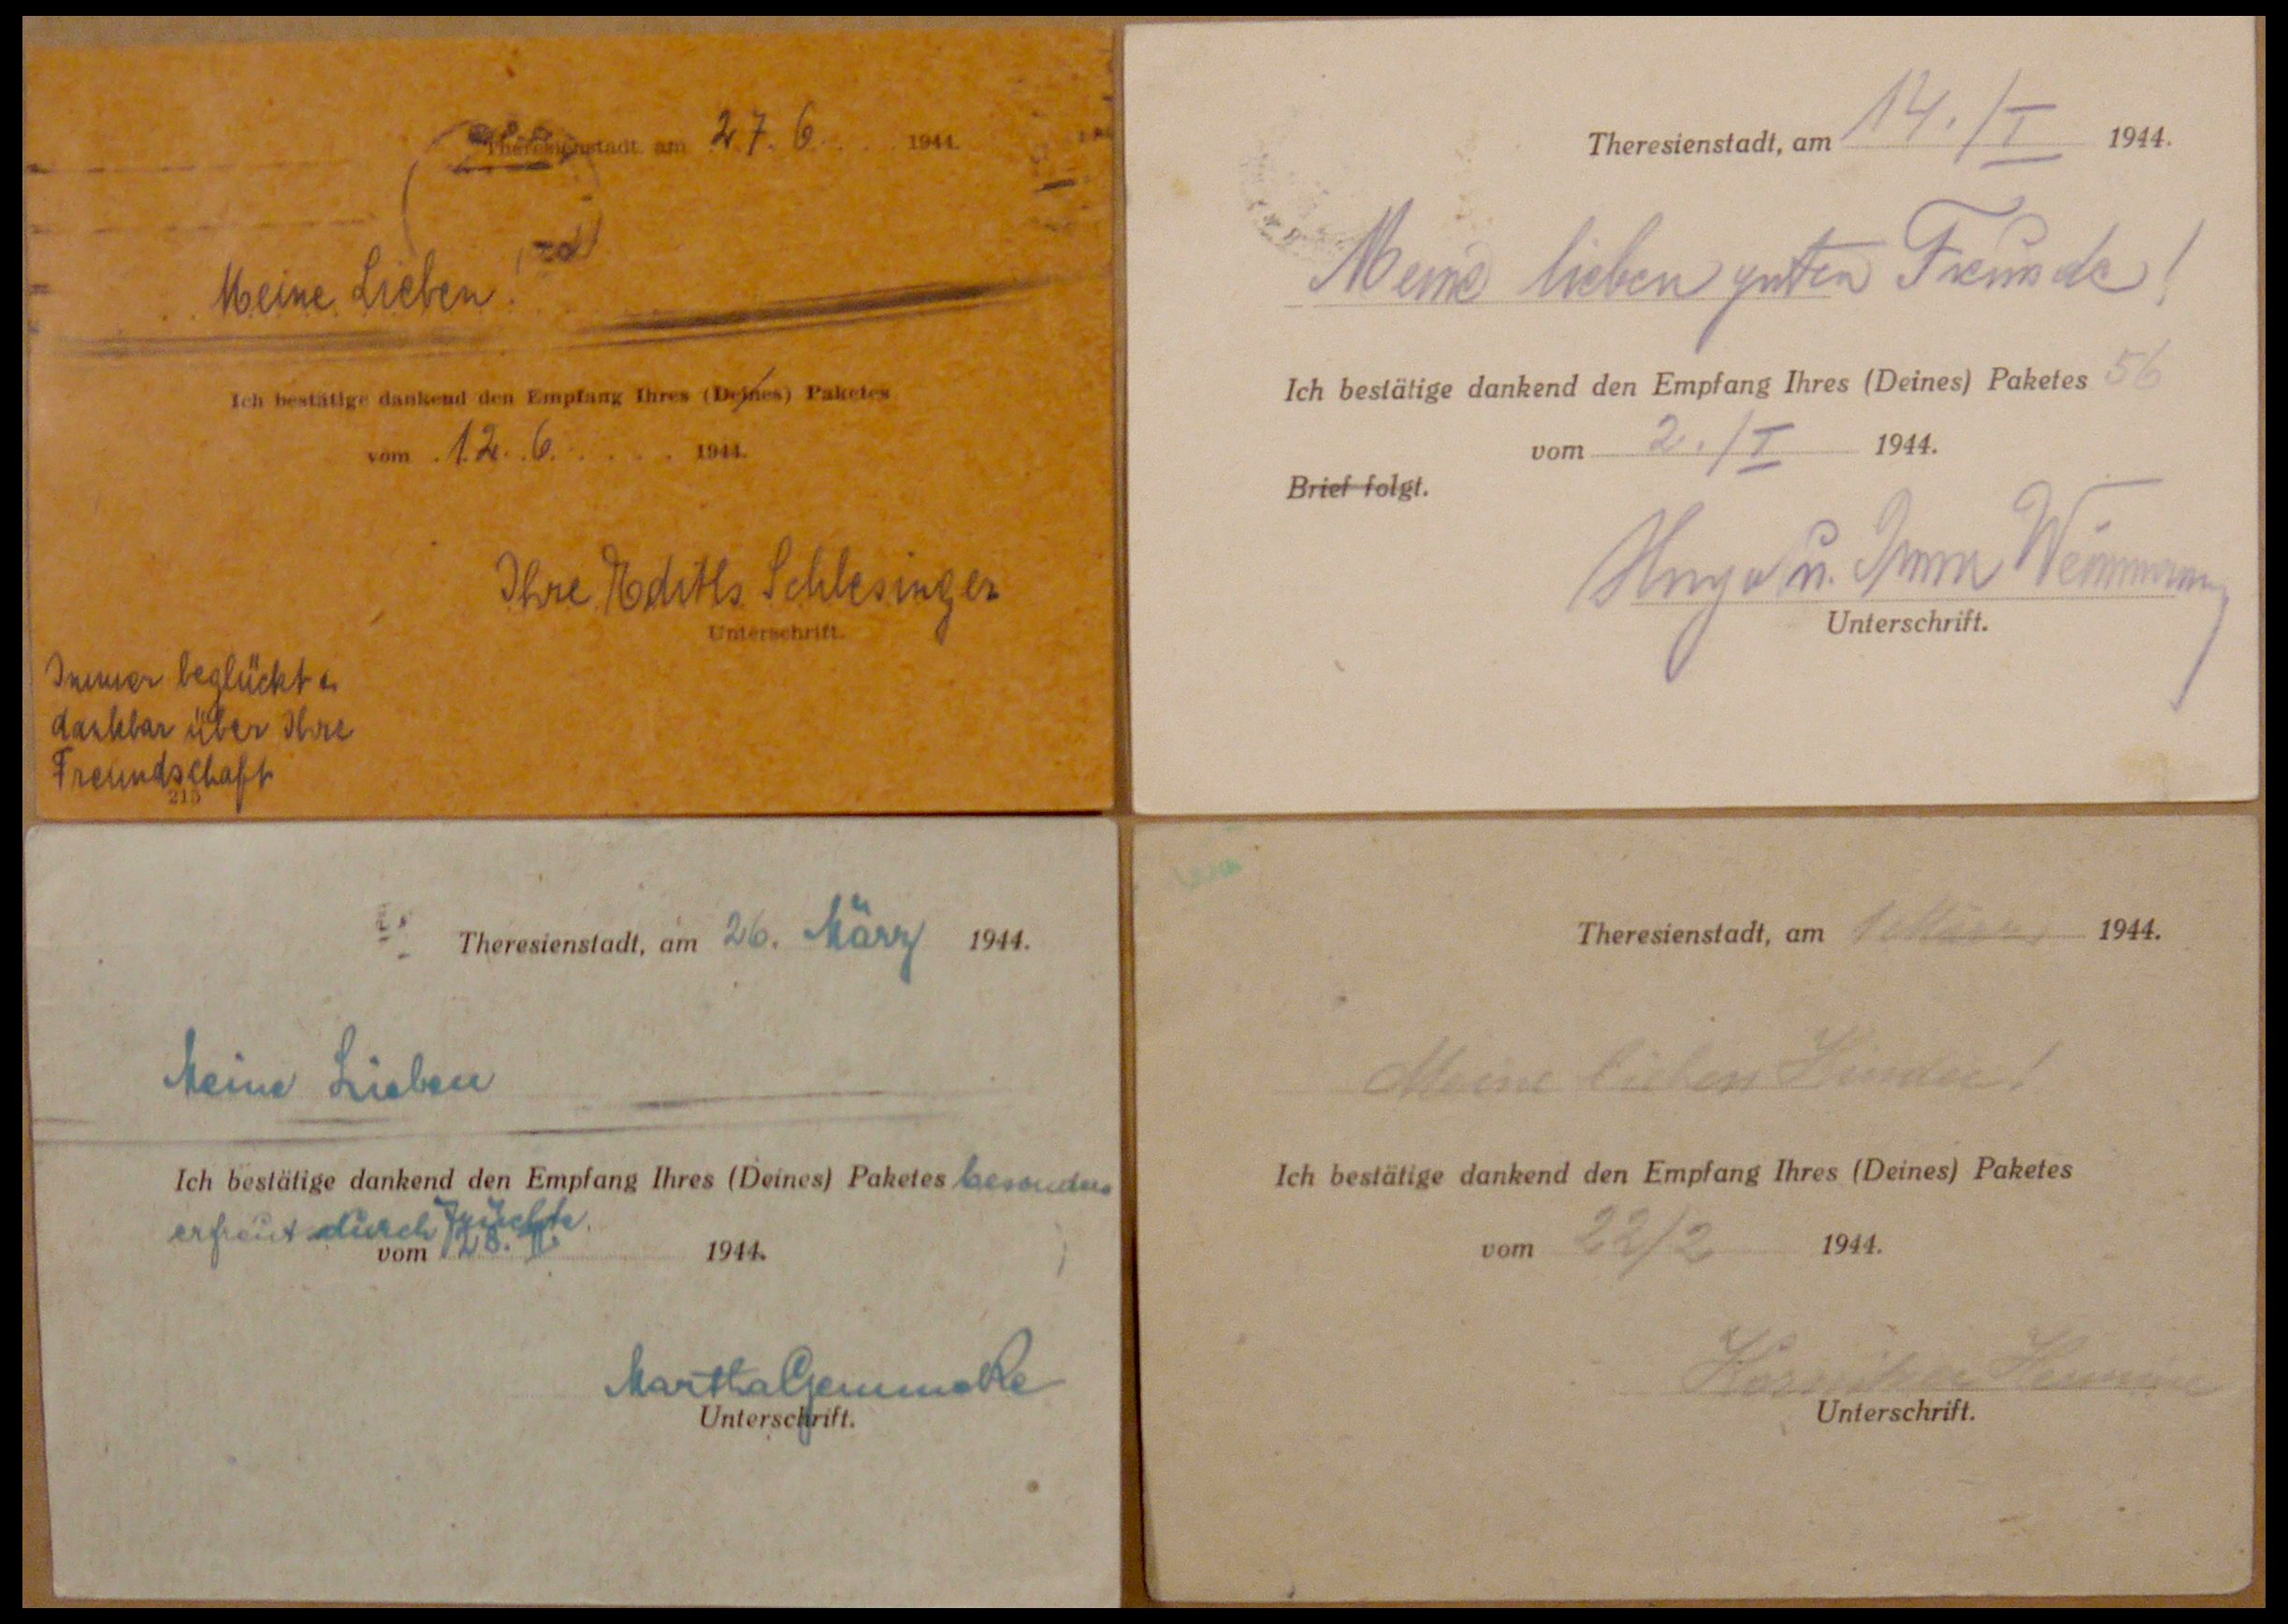 Theresienstadt am 27. 6. 1944.
Meine Lieben!
Ich bestätige dankend den Empfang Ihres (Deines) Paketes
vom 12. 6. 1944.
Ihre Edith Schlesinger
Unterschrift.
Immer beglückt u.
dankbar über Ihre
Freundschaft
213
Theresienstadt, am 14./I 1944.
Meine lieben guten Freunde!
Ich bestätige dankend den Empfang Ihres (Deines) Paketes 56
vom 2./I 1944.
Brief folgt.
Hugo u. Irma Weinmann
Unterschrift.
Theresienstadt, am 26. März 1944.
Meine Lieben
Ich bestätige dankend den Empfang Ihres (Deines) Paketes besonders
erfreut durch Früchte.
vom 28. II. 1944.
Martha
Unterschrift.
Theresienstadt, am 1944.
Meine lieben Kinder!
Ich bestätige dankend den Empfang Ihres (Deines) Paketes
vom 22/2 1944.
Unterschrift.